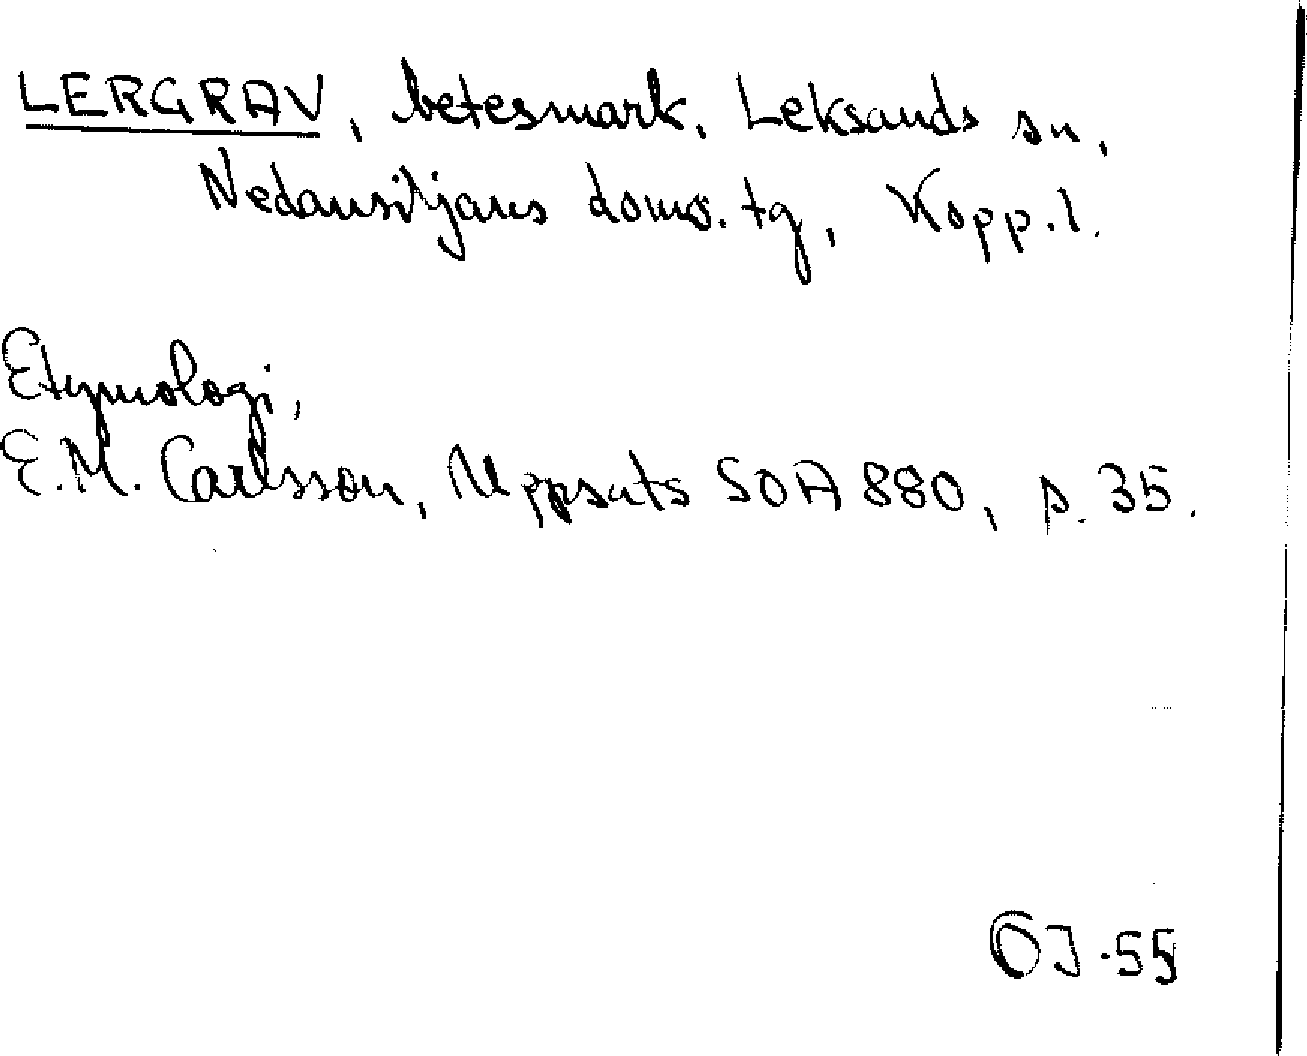 LERGRAV, betesmark, Leksands sn,
Nedansiljans doms. tg, Kopp. l.
Etymologi,
E.M. Carlsson, Uppsats SOA 880, s. 35.
OJ-55